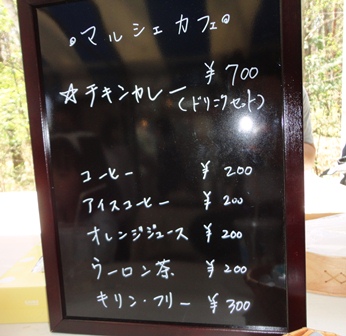 マルシェカフェ
☆チキンカレー ¥700
(ドリンクセット)
コーヒー ¥200
アイスコーヒー ¥200
オレンジジュース ¥200
ウーロン茶 ¥200
キリン・フリー ¥300